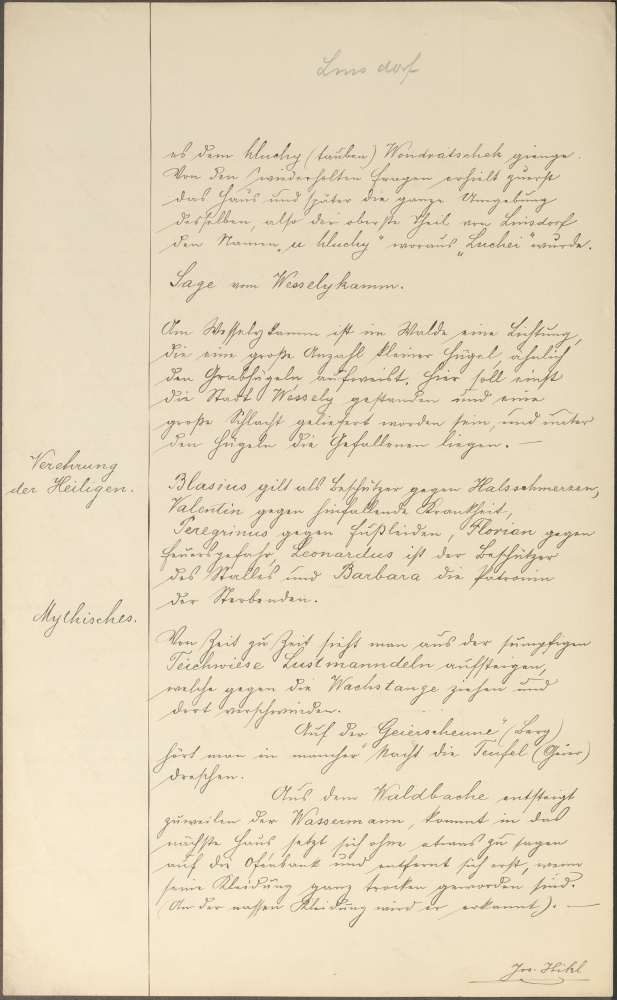 Linsdorf
es dem hluchy (tauben) Wondratschek gienge.
Von den wiederholten Fragen erhielt zuerst
das Haus und später die ganze Umgebung
desselben, also der oberste Theil von Linsdorf
den Namen „u hluchy" woraus „Luchei" wurde.
Sage vom Wesselykamm.
Am Wesselykamm ist im Walde eine Lichtung,
die eine große Anzahl kleiner Hügel, ähnlich
den Grabhügeln aufweist. Hier soll einst
die Stadt Wessely gestanden und eine
große Schlacht geliefert worden sein, und unter
den Hügeln die Gefallenen liegen. —
Verehrung
der Heiligen.
Blasius gilt als Beschützer gegen Halsschmerzen,
Valentin gegen hinfallende Krankheit,
Peregrinus gegen Fußleiden, Florian gegen
Feuersgefahr, Leonardus ist der Beschützer
des Stalles und Barbara die Patronin
der Sterbenden.
Mythisches.
Von Zeit zu Zeit sieht man aus der sumpfigen
Teichwiese Lustmanndeln aufsteigen,
welche gegen die Wachstange ziehen und
dort verschwinden.
Auf der „Geierscheune" (Berg)
hört man in mancher Nacht die Teufel (Geier)
dreschen.
Aus dem Waldbache entsteigt
zuweilen der Wassermann, kommt in das
nächste Haus setzt sich ohne etwas zu sagen
auf die Ofenbank und entfernt sich erst, wenn
seine Kleidung ganz trocken geworden sind.
(An der nassen Kleidung wird er erkannt). —
Jos. Hikl